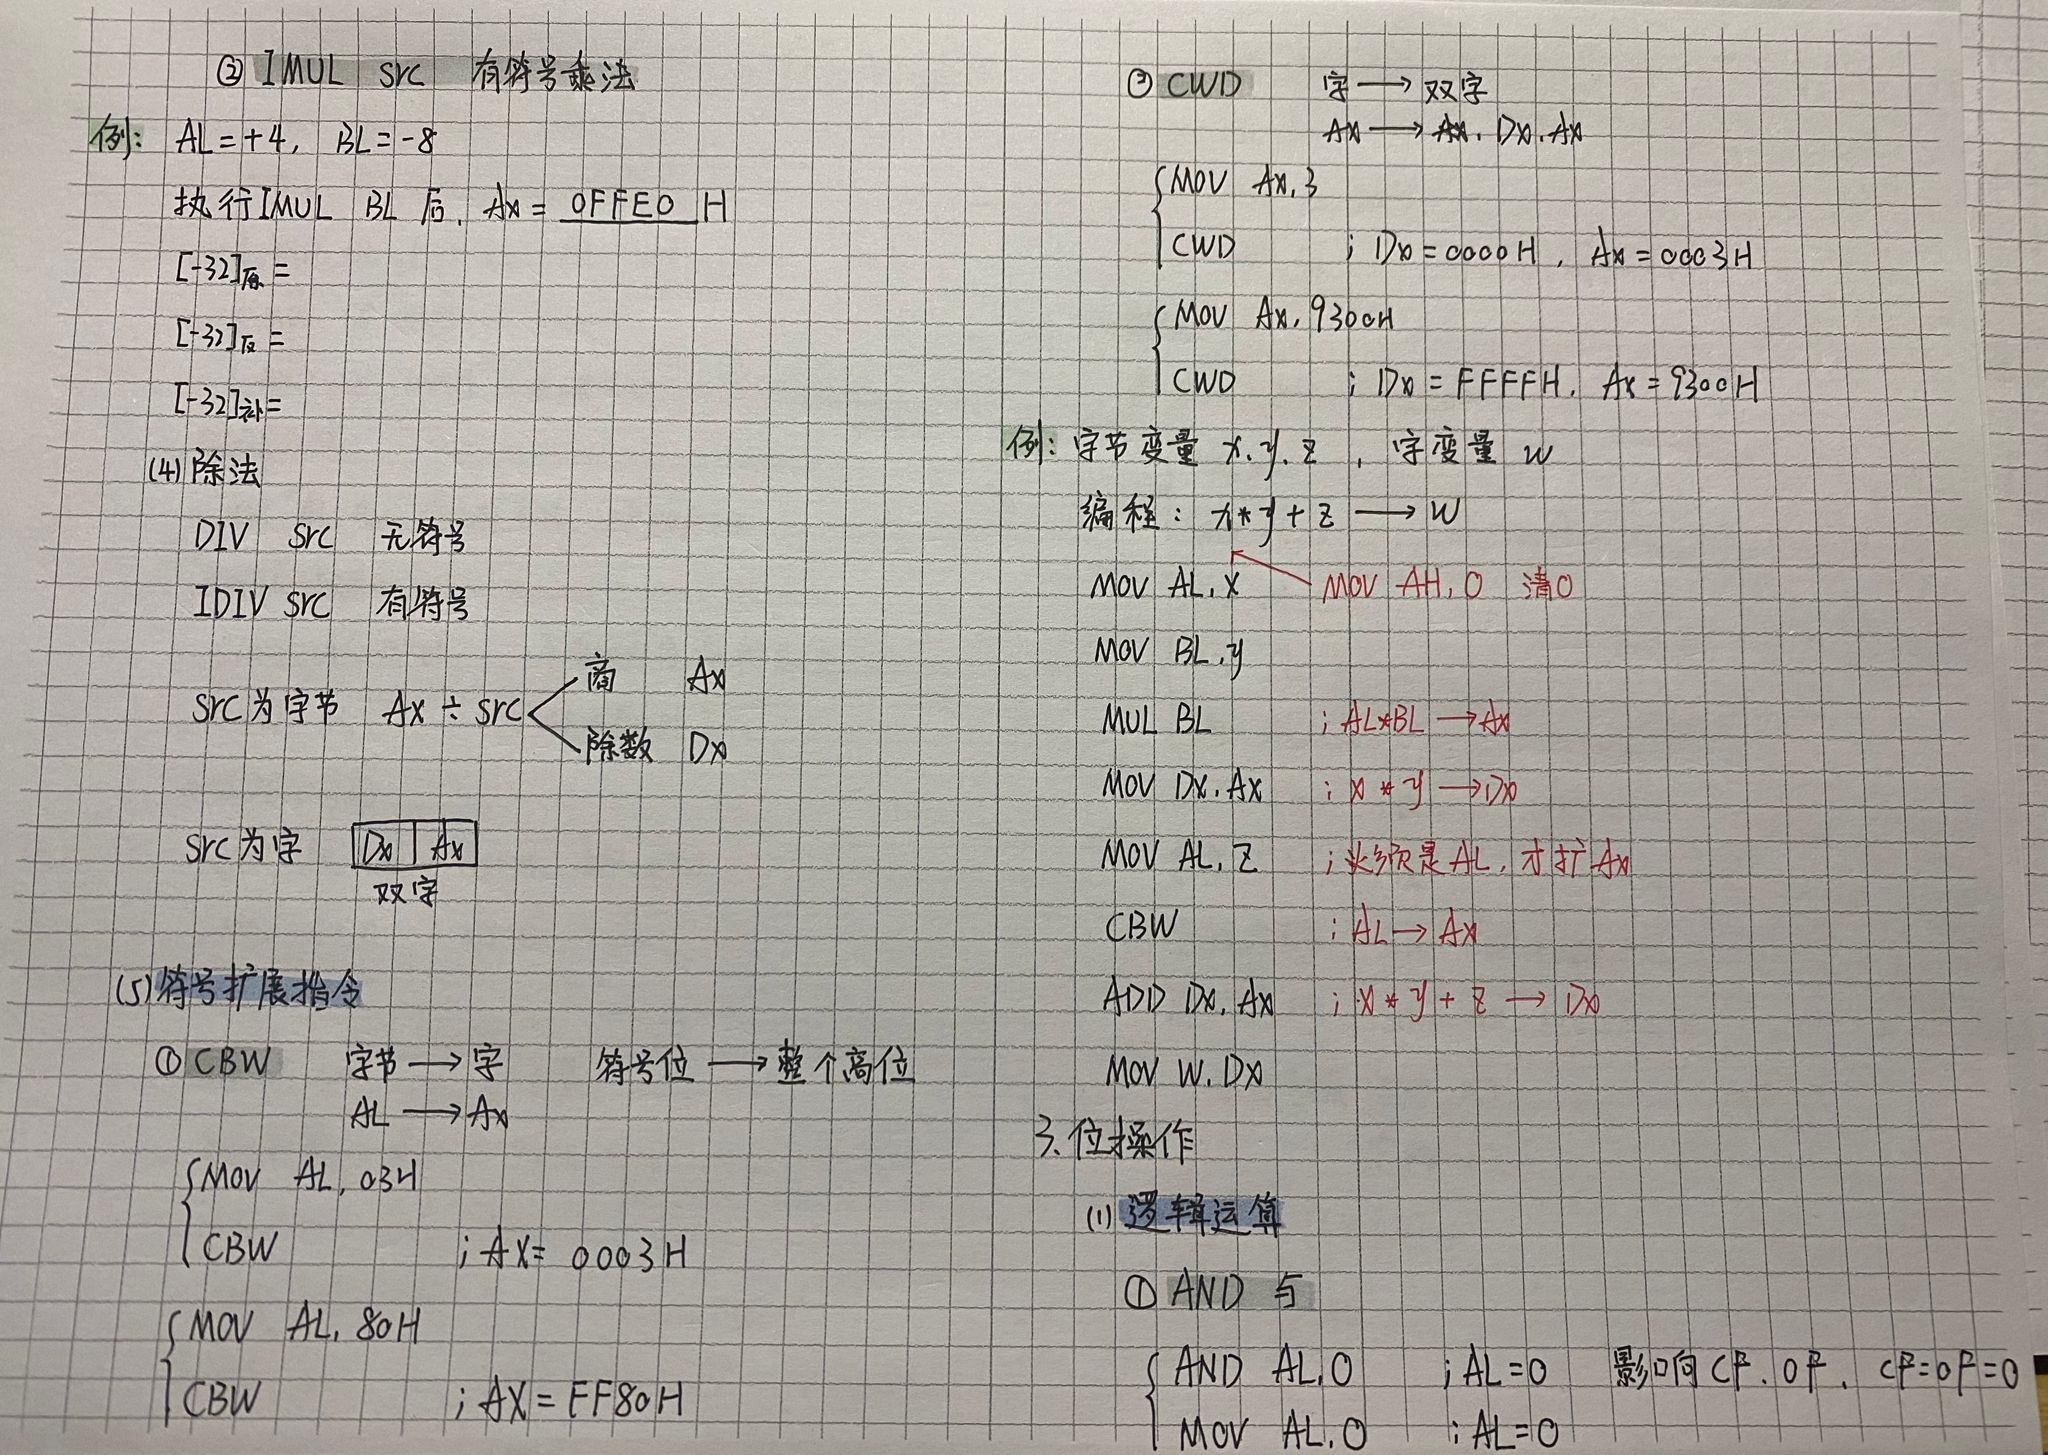 ② IMUL src 有符号乘法
例: AL=+4, BL=-8
执行IMUL BL 后, AX= 0FFE0 H
[-32]原=
[-32]反=
[-32]补=
(4) 除法
DIV src 无符号
IDIV src 有符号
src为字节 AX ÷ src
商 AX
除数 DX
src为字 DX AX
双字
(5) 符号扩展指令
① CBW 字节→字 符号位→整个高位
AL→AX
MOV AL, 03H
CBW ; AX= 0003H
MOV AL, 80H
CBW ; AX=FF80H
② CWD 字→双字
AX→AX. DX.AX
MOV AX, 3
CWD ; DX=0000H, AX=0003H
MOV AX, 9300H
CWD ; DX=FFFFH, AX=9300H
例: 字节变量 x.y.z , 字变量 w
编程: x*y+z→W
MOV AL, X MOV AH, 0 清0
MOV BL, y
MUL BL ; AL*BL→AX
MOV DX, AX ; x*y→DX
MOV AL, Z ; 必须是AL, 才扩AX
CBW ; AL→AX
ADD DX, AX ; x*y+z→DX
MOV W, DX
3. 位操作
(1) 逻辑运算
① AND 与
AND AL, 0 ; AL=0 影响CF. OF, CF=OF=0
MOV AL, 0 ; AL=0